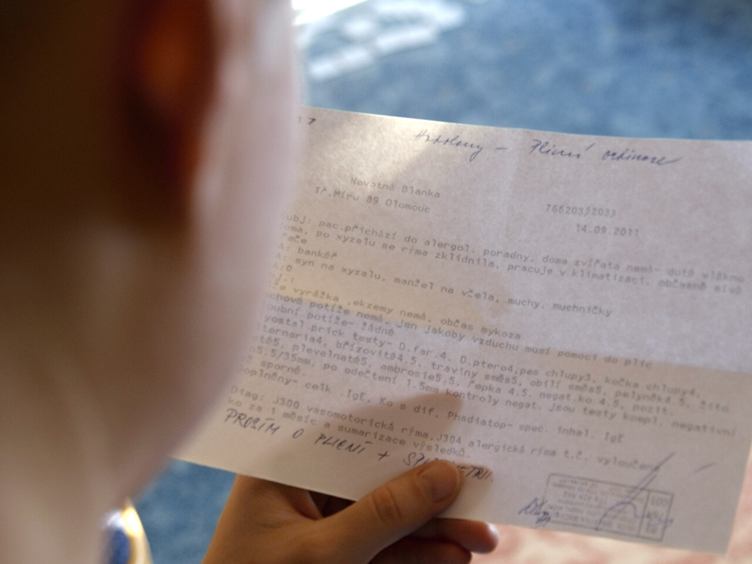 Plicní ordinace
Novotná Blanka
Tř.Míru 89 Olomouc
766203/2033
14.09.2011
ubj: pac.přichází do alergol. poradny, doma zvířata nemá- duté vlákno
po xyzalu se rýma zklidnila, pracuje v klimatizaci, občasně
A: bankéř
A: syn na xyzalu, manžel na včela, mouchy, muchničky
A:0
vyrážka ,ekzemy nemá, občas mykoza
chové potíže nemá, jen jakoby vzduchu musí pomoci do plic
potíže- žádné
prick testy- D.far.4. D.ptero4,pes chlupy3, kočka chlupy4,
ternaria4, břízovité4.5, traviny směs5, obilí směs5, pelyněk4.5, žito
5, plevelnatě5, ambrosie5.5, řepka 4.5. negat.ko 4.5, pozit.
5.5/35mm, po odečtení 1.5mm kontroly negat. jsou testy kompl. negativní
sporné.
oplněny- celk .IgE, Ko s dif. Phadiatop- spec. inhal. IgE
Diag: J300 vasomotorická rýma,J304 alergická rýma t.č. vyloučena
ko za 1 měsíc a sumarizace výsledků.
PROSÍM O PLICNÍ +